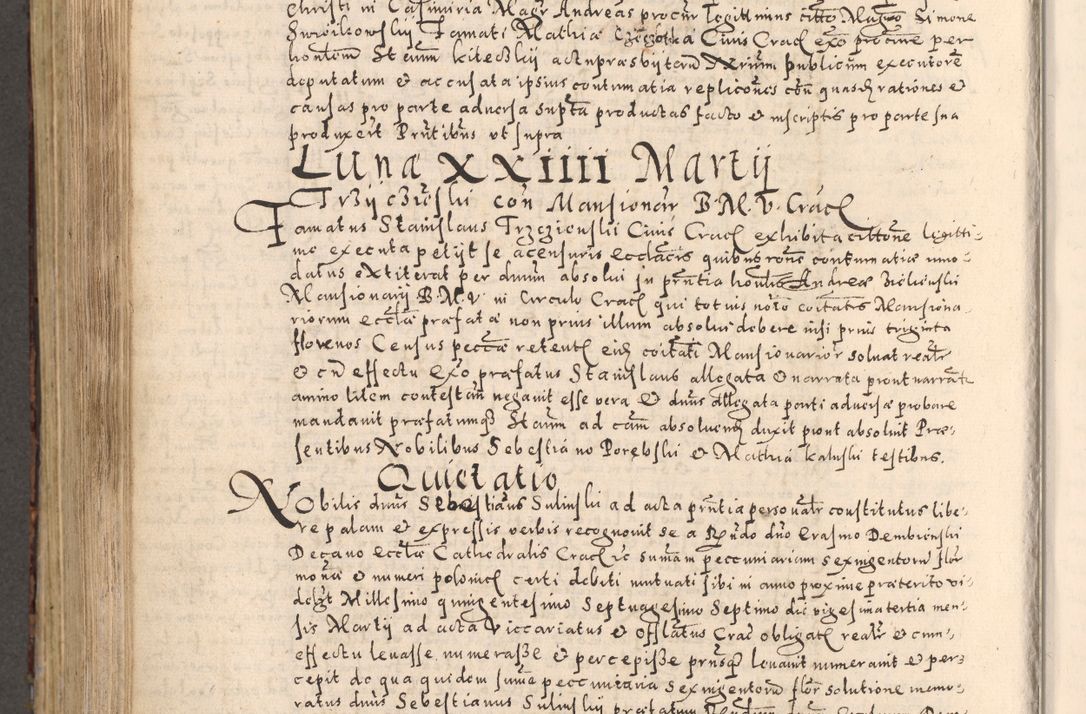 Christi in Casimiria Magr Andreas procur legittimus citto Magro Simone
Swoikowskij Famati Mathiæ Czeczotka Civis Crac exo procme per
hontem Staum kiteczkij actu præsbyterum Nrium publicum executore
deputatum et accusata ipsius contumatia replicones con quasdē rationes et
causas pro parte adversa supta productas facto et inscriptis pro parte sua
produxert Prntibus ut supra
Luna XXIIII Martij
Trzijcziski con Mansionar B. M. V. Crac
Famatus Stanislaus Trzczienskij Civis Crac exhibita cittone legitti-
me executa petijt se a censuris ecclacis quibus rone contumatiæ inno-
datus extiterat per dnum absolui in prntia hontis Andreæ Bielienskij
Mansionarij B. M. V. in Circulo Crac qui totius noīo coītatis Mansiona-
riorum eccla præfatæ non prius illum absolui debere nisi prius triginta
florenos Census pecca retent eidē coitati Mansionarior soluat realr
et cū effectu Exo præfatus Stanislaus allegata et narrata prout narratr
animo litem contestan negauit esse vera et dnus allegata parti adversæ probare
mandauit præfatumq Staum ad cām absoluendū duxit prout absoluit Præ-
sentibus Nobilibus Sebestiano Porębskij et Mathia kaluski testibus.
Quietatio
Nobilis dnus Sebestianus Sulinskij ad acta prntia personalr constitutus libe-
re palam et expressis verbis recognouit se a Rndo dno Erasmo Dembienskij
Decano Eccla Cathedralis Crac ic sumām peccuniariam sexingentorū flor
monæ et numeri polonic certi debiti mutuati sibi in anno proxime præterito vi-
delzt Millesimo quingentesimo Septuagesimo Septimo die vigesimatertia men-
sis Martij ad acta Viccariatus et Offlatus Crac obligat realr et cum
effectu leuasse numerasse et percepisse prnsq leuauit numerauit et per-
cepit de qua quidem sume peccuniaria Sexingentorū flor solutione memo-
ratus dnus Sebestianus Sulinskij præfatum